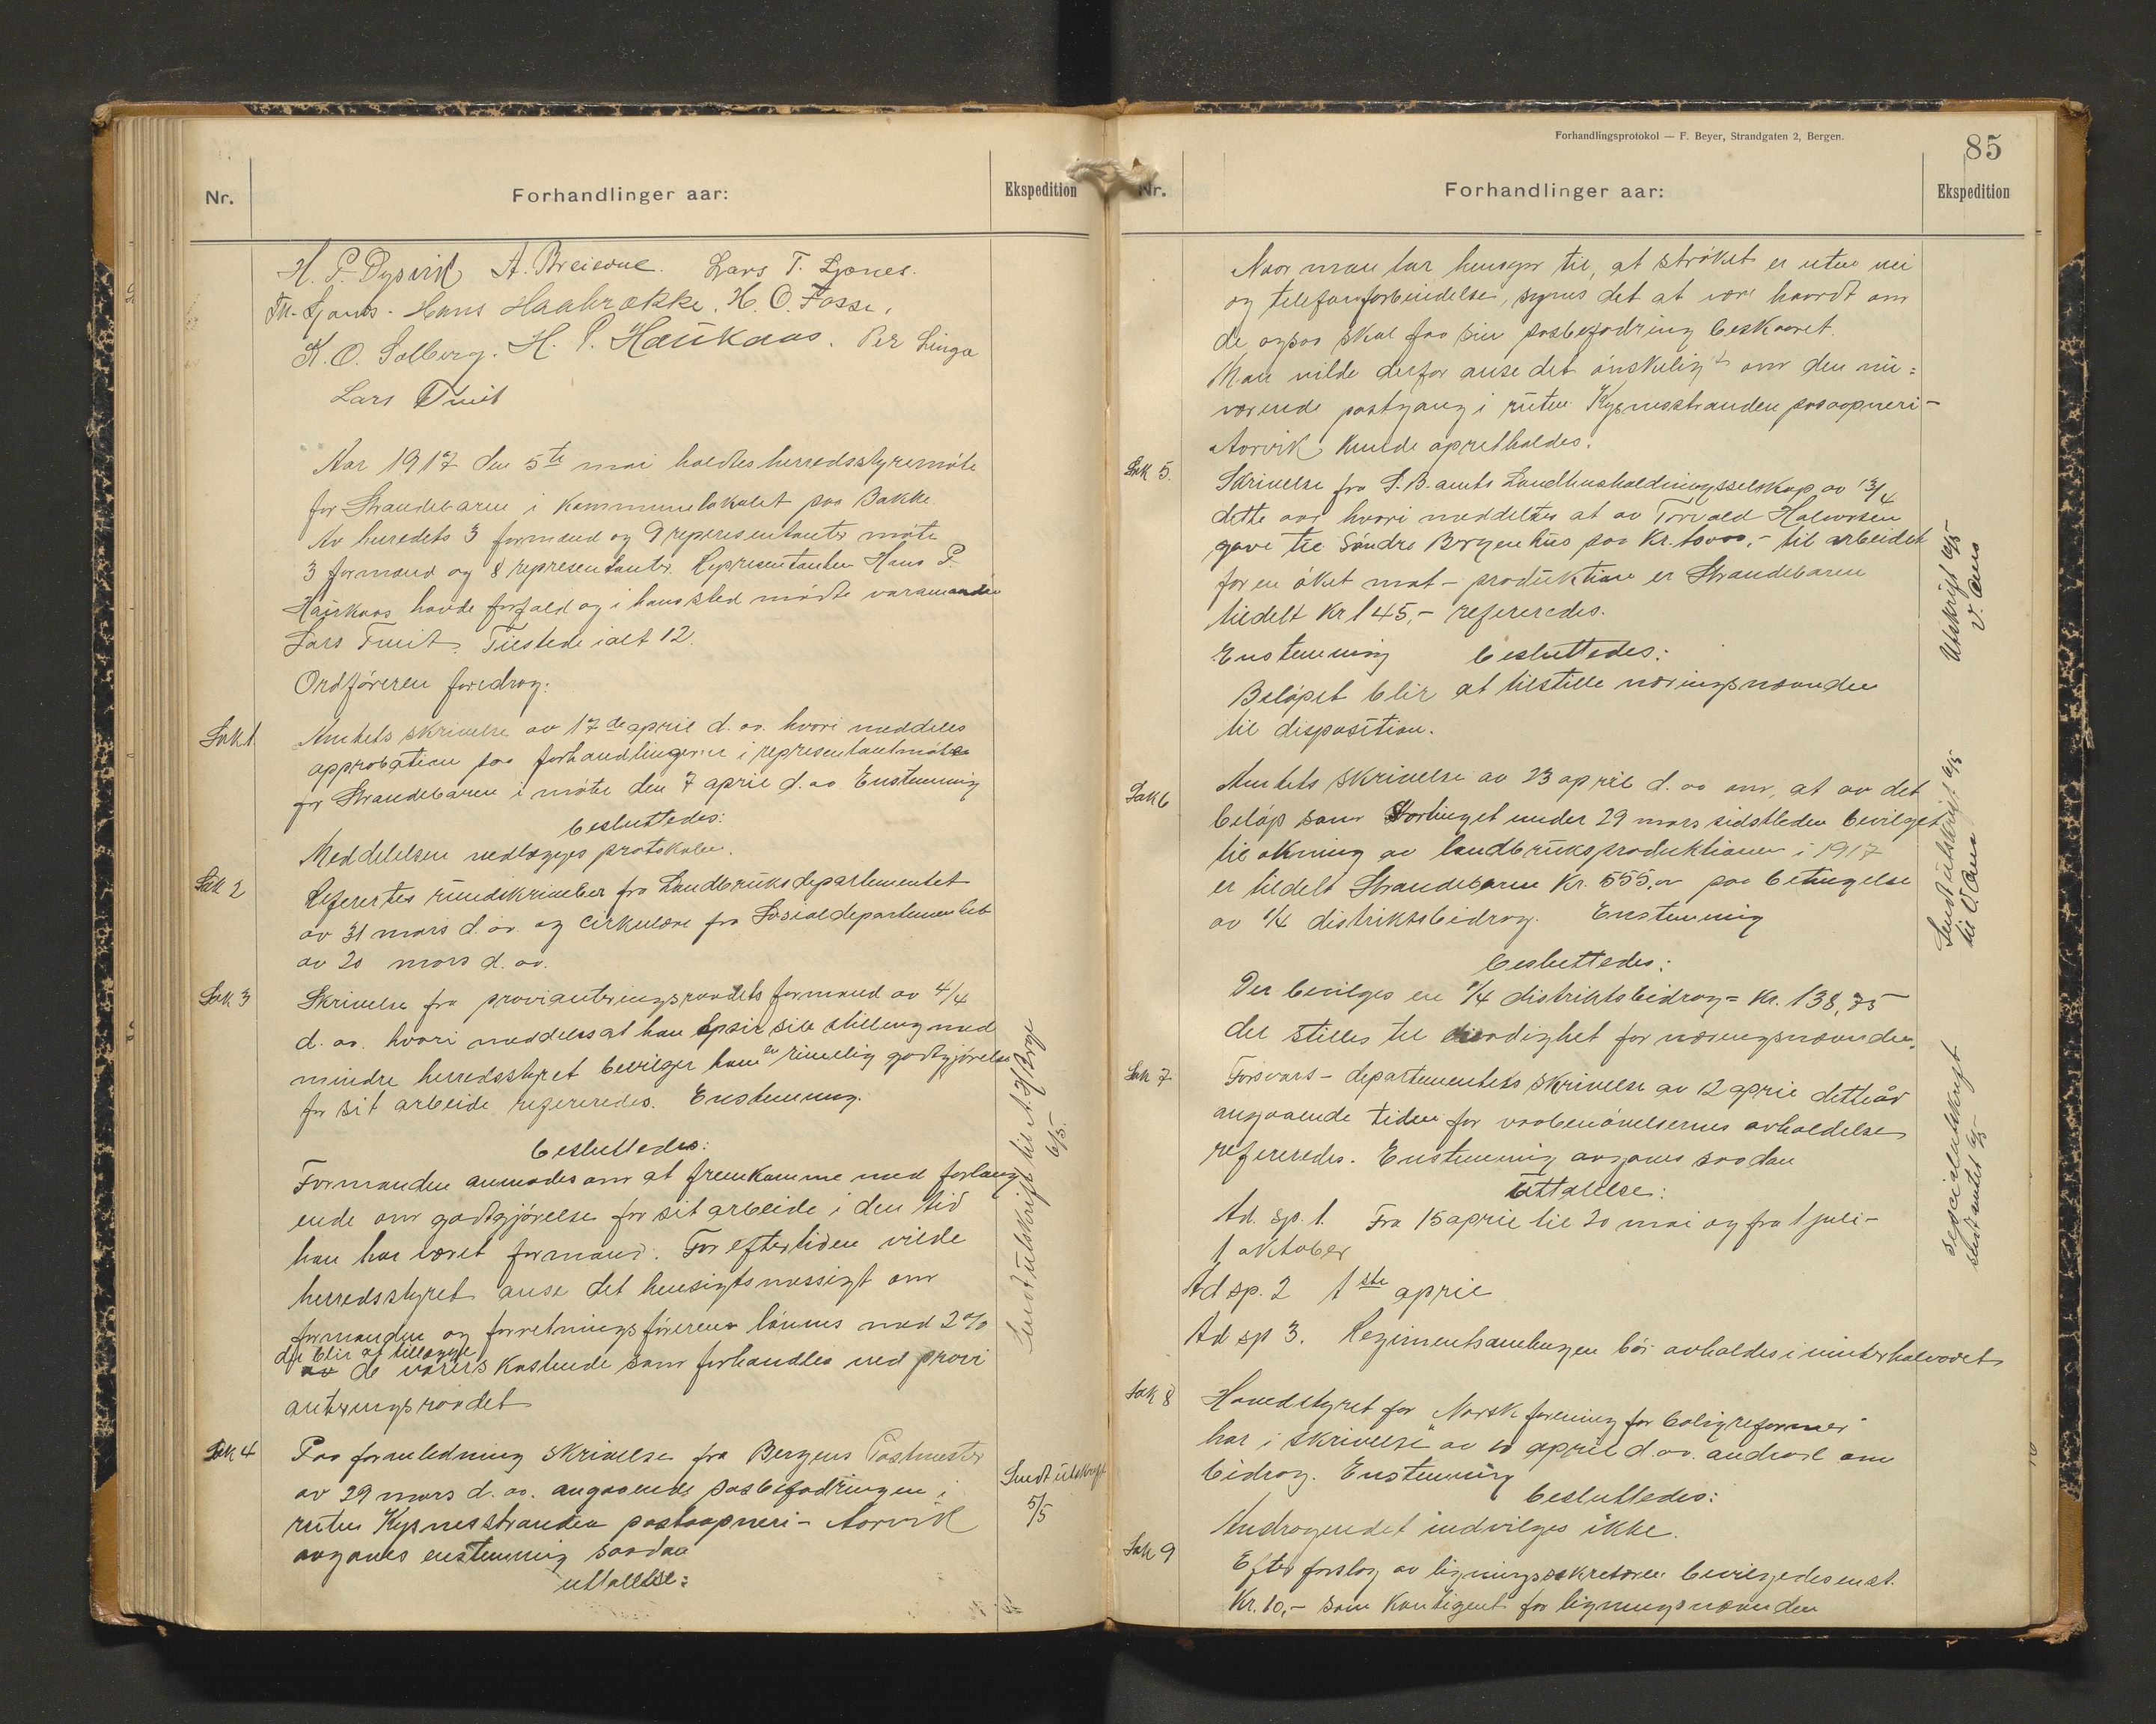 Nr.
Forhandlinger aar:
Ekspedition
H. P. Dysvik A. Breievne. Lars T. Ljones.
Th. Ljones. Hans Haabrække. H. O. Fosse.
K. O. Solberg. H. P. Haukaas. Per Linga
Lars Tveit
Aar 1917 den 5te mai holdtes herredsstyremöte
for Strandebarm i kommunelokalet paa Bakke.
Av herredets 3 formænd og 9 representanter mötte
3 formænd og 8 representanter. Representanten Hans P.
Haukaas havde forfald og i hans sted mödte varamanden
Lars Tveit. Tilstede ialt 12.
Ordföreren foredrog:
Sak 1.
Amtets skrivelse av 17de april d. aa. hvori meddeles
approbation paa forhandlingerne i representantmöte
for Strandebarm i möte den 7 april d. aa. Enstemmig
besluttedes:
Meddelelsen vedlægges protokolen.
Sak 2
Referertes rundskrivelser fra Landbruksdepartementet
av 31 mars d. aa. og cirkulære fra Socialdepartementet
av 20 mars d. aa.
Sak 3
Skrivelse fra provianteringsraadets formand av 4/4
d. aa. hvori meddeles at han opsir sin stilling med
mindre herredsstyret bevilger ham en rimelig godtgjörelse
for sit arbeide refereredes. Enstemmig.
besluttedes:
Formanden anmodes om at fremkomme med forlang
ende om godtgjörelse for sit arbeide i den tid
han har været formand. For eftertiden vilde
herredsstyret anse det hensigtsmæssigt om
formanden og forretningsförerens lönnes med 2%
der blir at tillægge
av de varers kostende som forhandles ved provi
anteringsraadet
Sendt utskrift til A. H. Berge
6/5.
Sak 4
Paa foranledning skrivelse fra Bergens Postmester
av 29 mars d. aa. angaaende posbefodringen i
ruten Kysnesstranden postaapneri - Aarvik
avgaves enstemmig saadan
uttalelse:
Sendt utskrift
5/5
Forhandlingsprotokol — F. Beyer, Strandgaten 2, Bergen.
85
Nr.
Forhandlinger aar:
Ekspedition
Naar man tar hensyn til, at ströket er uten vei
og telefonforbindelse, synes det at være haardt om
de ogsaa skal faa sin posbefodring beskaaret.
Man vilde derfor anse det önskelig om den nu=
værende postgang i ruten Kysnesstranden posaapneri-
Aarvik kunde opretholdes.
Sak 5.
Skrivelse fra S. B. amts Landhusholdningsselskap av 13/4
dette aar hvori meddeltes at av Torvald Halvorsen
gave til Söndre Bergenhus paa kr. 10000,- til arbeidet
for en öket mat-produktion er Strandebarm
tildelt Kr 145,- refereredes.
Enstemmig besluttedes:
Belöpet blir at tilstille næringsnævnden
til disposition.
Utskrift 6/5
V. Aas
Sak 6
Amtets skrivelse av 23 april d. aa om, at av det
belöp som Stortinget under 29 mars sidstleden bevilget
til økning av landbruksproduktionen i 1917
er tildelt Strandebarm Kr. 555,00 paa betingelse
av 1/4 distriktsbidrag. Enstemmig
besluttedes:
Der bevilges en 1/4 distriktsbidrag = Kr. 138,75
der stilles til raadighet for næringsnævnden.
Sendt utskrift 6/5
til V. Aas
Sak 7
Forsvars-departementets skrivelse av 12 april dette år
angaaende tiden for vaabenövelsernes avholdelse
refereredes. Enstemmig avgaves saadan
Uttalelse:
Ad. sp. 1. Fra 15 april til 20 mai og fra 1 juli-
1 oktober
Ad sp. 2 1ste april
Ad sp 3. Regimentsamlingen bör avholdes i vinterhalvaaret
Specialutskrift
sendt amtet 6/5
Sak 8
Hovedstyret for "Norsk forening for boligreformer"
har i skrivelse av 10 april d. aa. andraat om
bidrag. Enstemmig
besluttedes:
Andragendet indvilges ikke.
Sak 9
Efter forslag av ligningssekretæren bevilgedes enst.
Kr. 10,- som kontigent for ligningsnævnden